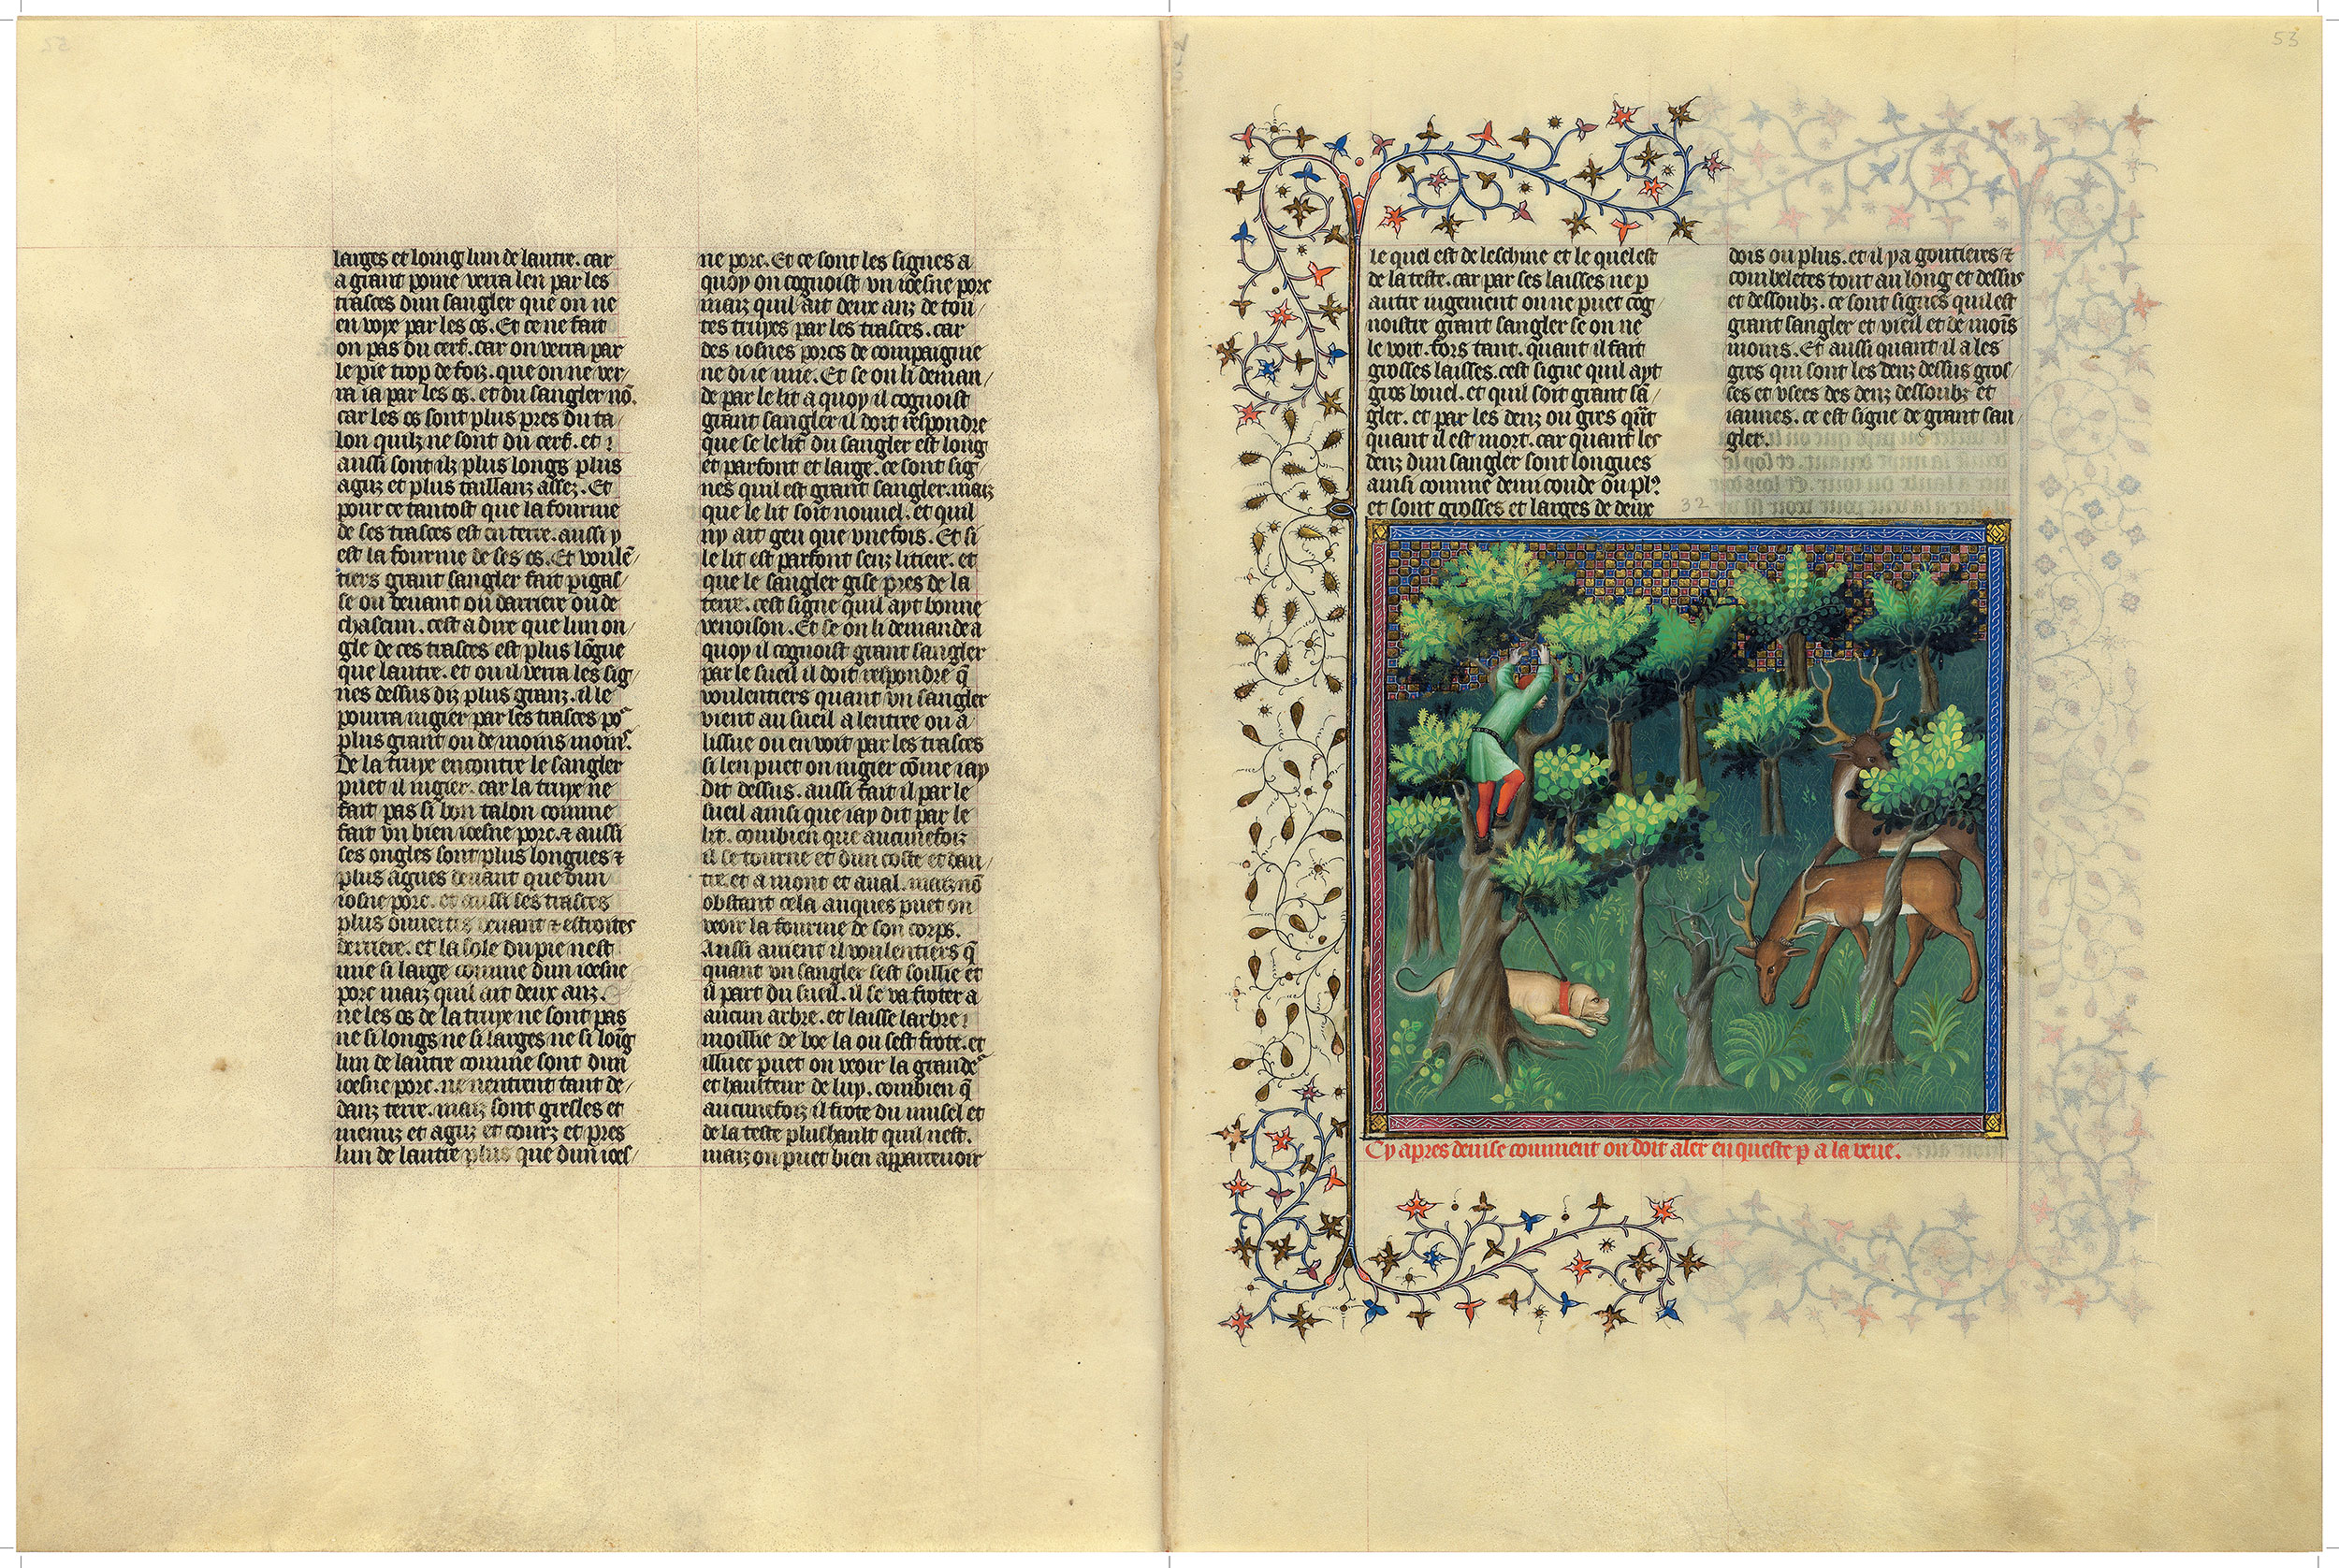 larges et loing lun de lautre. car
a grant poine verra len par les
trasces dun sangler que on ne
en voye par les os. Et ce ne fait
on pas du cerf. car on verra par
le pie trop de foiz. que on ne ver/
ra ia par les os. et du sangler nō.
car les os sont plus pres du ta/
lon quilz ne sont du cerf. et
aussi sont ilz plus longs plus
aguz et plus taillanz assez. Et
pour ce tantost que la fourme
de ses trasces est en terre. aussi y
est la fourme de ses os. Et voulē/
tiers grant sangler fait pigas/
se ou deuant ou darriere ou de
chascun. cest a dire que lun on/
gle de ces trasces est plus lōgue
que lautre. et ou il verra les sig/
nes dessus diz plus granz. il le
pourra iugier par les trasces po
plus grant ou de moins moins.
De la truye encontre le sangler
puet il iugier. car la truye ne
fait pas si bon talon comme
fait un bien ioesne porc. & aussi
ses ongles sont plus longues &
plus agues deuant que dun
iosne porc. et aussi ses trasces
plus ouuertes deuant & estroites
derriere. et la sole du pie nest
mie si large comme dun ioesne
porc maiz quil ait deux anz.
ne les os de la truye ne sont pas
ne si longs ne si larges ne si loīg
lun de lautre comme sont dun
ioesne porc. ne nentrent tant de/
danz terre. maiz sont gresles et
menuz et aguz et courz et pres
lun de lautre plus que dun ioes/
ne porc. Et ce sont les signes a
quoy on cognoist un ioesne porc
maiz quil ait deux anz de tou/
tes truyes par les trasces. car
des iosnes porcs de compaignie
ne di ie mie. Et se on li deman/
de par le lit a quoy il cognoist
grant sangler il doit respondre
que se le lit du sangler est long
et parfont et large. ce sont sig/
nes quil est grant sangler. maiz
que le lit soit nouuel. et quil
ny ait geu que une fois. Et si
le lit est parfont senz litiere. et
que le sangler gise pres de la
terre. cest signe quil ayt bonne
venoison. Et se on li demande a
quoy il cognoist grant sangler
par le sueil il doit respondre q̄
voulentiers quant un sangler
vient au sueil a lentree ou a
lissue ou en voit par les trasces
si len puet on iugier cōme iay
dit dessus. aussi fait il par le
sueil ainsi que iay dit par le
lit. combien que aucunefoiz
il se tourne et dun coste et dau/
tre et a mont et aual. maiz nō
obstant cela auques puet on
veoir la fourme de son corps.
Aussi auient il voulentiers q̄
quant un sangler sest soillie et
il part du sueil. il se va froter a
aucun arbre. et laisse larbre
moillie de boe la ou sest frote. et
illuec puet on veoir la grande
et haulteur de luy. combien q̄
aucunefoiz il frote du musel et
de la teste plus hault quil nest.
maiz on puet bien apparceuoir
53
le quel est de leschine et le quel est
de la teste. car par ses laisses ne p
autre iugement on ne puet cog/
noistre grant sangler se on ne
le voit. fors tant. quant il fait
grosses laisses. cest signe quil ayt
gros bouel. et quil soit grant sā/
gler. et par les denz ou gres q̄nt
quant il est mort. car quant les
denz dun sangler sont longues
ainsi comme demi coude ou pl
et sont grosses et larges de deux
32
dois ou plus. et il y a goutieres &
combeletes tout au long et dessus
et dessoubz. ce sont signes quil est
grant sangler et vieil et de moīs
moins. Et aussi quant il a les
gres qui sont les denz dessus gros/
ses et usees des denz dessoubz et
iaunes. ce est signe de grant san/
gler.
Cy apres deuise comment on doit aler en queste p a la veue.